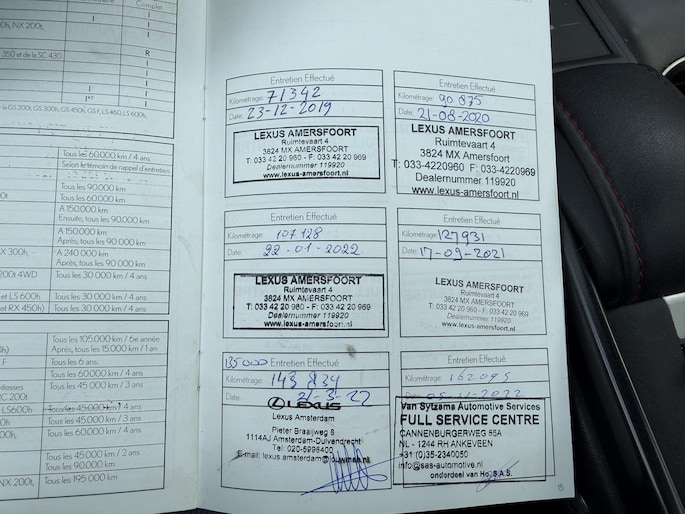 Complet
0h, NX 200t,
I
350 et de la SC 430
R
I
I
I
I
I*⁷
I
la GS 200t, GS 300h, GS 450h, GS F, LS 460, LS 600h,
Tous les 60 000 km / 4 ans
Selon le témoin de rappel d'entretien
Tous les 90 000 km
Tous les 60 000 km
A 150 000 km
Ensuite, tous les 90 000 km
A 150 000 km
Après, tous les 90 000 km
X 300h,
A 240 000 km
Après, tous les 90 000 km
200t 4WD
Tous les 30 000 km / 4 ans
et LS 600h
Tous les 30 000 km / 4 ans
et RX 450h)
Tous les 30 000 km / 4 ans
Tous les 105 000 km / 6e année
Après, tous les 15 000 km / 1 an
F
Tous les 6 ans.
Tous les 60 000 km / 4 ans
Tous les 45 000 km / 3 ans
C 200t
LS600h
Tous les 45 000 km / 4 ans
Tous les 45 000 km / 3 ans
Tous les 60 000 km / 4 ans
Tous les 45 000 km / 2 ans
Tous les 90 000 km
NX 200t,
Tous les 195 000 km
Entretien Effectué
Kilométrage: 71342
Date: 23-12-2019
LEXUS AMERSFOORT
Ruimtevaart 4
3824 MX AMERSFOORT
T: 033 42 20 960 - F: 033 42 20 969
Dealernummer 119920
www.lexus-amersfoort.nl
Entretien Effectué
Kilométrage: 90 875
Date: 21-08-2020
LEXUS AMERSFOORT
Ruimtevaart 4
3824 MX Amersfoort
T: 033-4220960 F: 033-4220969
Dealernummer 119920
www.lexus-amersfoort.nl
Entretien Effectué
Kilométrage: 107128
Date: 22-01-2022
LEXUS AMERSFOORT
Ruimtevaart 4
3824 MX AMERSFOORT
T: 033 42 20 960 - F: 033 42 20 969
Dealernummer 119920
www.lexus-amersfoort.nl
Entretien Effectué
Kilométrage: 127931
Date: 17-09-2021
LEXUS AMERSFOORT
Ruimtevaart 4
3824 MX AMERSFOORT
T: 033 42 20 960 - F: 033 42 20 969
Dealernummer 119920
www.lexus-amersfoort.nl
135000 Entretien Effectué
Kilométrage: 143 834
Date: 21-3-22
LEXUS
Lexus Amsterdam
Pieter Braaijweg 8
1114AJ Amsterdam-Duivendrecht
Tel: 020-5996400
E-mail: lexus.amsterdam@louwman.nl
Entretien Effectué
Kilométrage: 162095
Date: 05-11-2022
Van Sytzama Automotive Services
FULL SERVICE CENTRE
CANNENBURGERWEG 65A
NL - 1244 RH ANKEVEEN
+31 (0)35-2340050
info@sas-automotive.nl
onderdeel van
S.A.S.
15